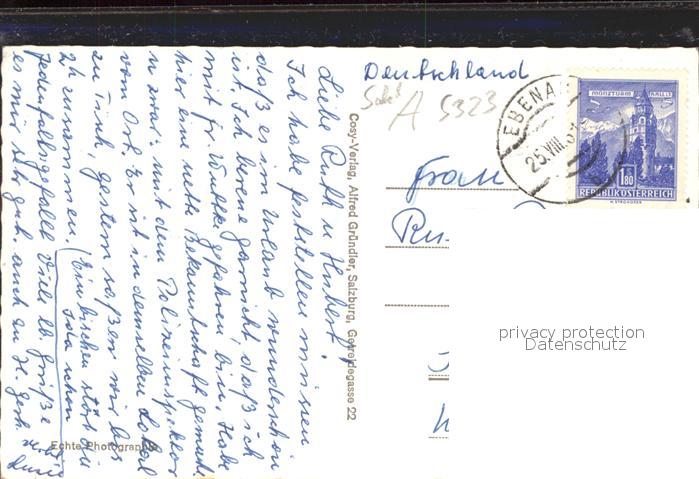 Liebe Ruth u Hubert!
Ich habe feststellen müssen
daß es im Urlaub wunderschön
ist. Ich bereue garnicht, daß ich
mit fr. gefahren bin. Habe
hier eine nette Bekanntschaft gemacht
u zwar mit dem Polizeiinspektor
vom Ort. Er ist in demselben Lokal
zu Tisch, gestern saßen wir bis
2h zusammen. (Ein bischen stört sie
jedenfalls gefällt Viele lb Grüße
es mir sehr gut. auch an H.
Echte Photographie
Cosy-Verlag, Alfred Gründler, Salzburg, Getreidegasse 22
Deutschland
A 5323
EBENA
25.VIII.6
MÜNZTURM HALL I.T.
1.80
REPUBLIK ÖSTERREICH
H. STROHOFER
Frau
Ru
privacy protection
Datenschutz